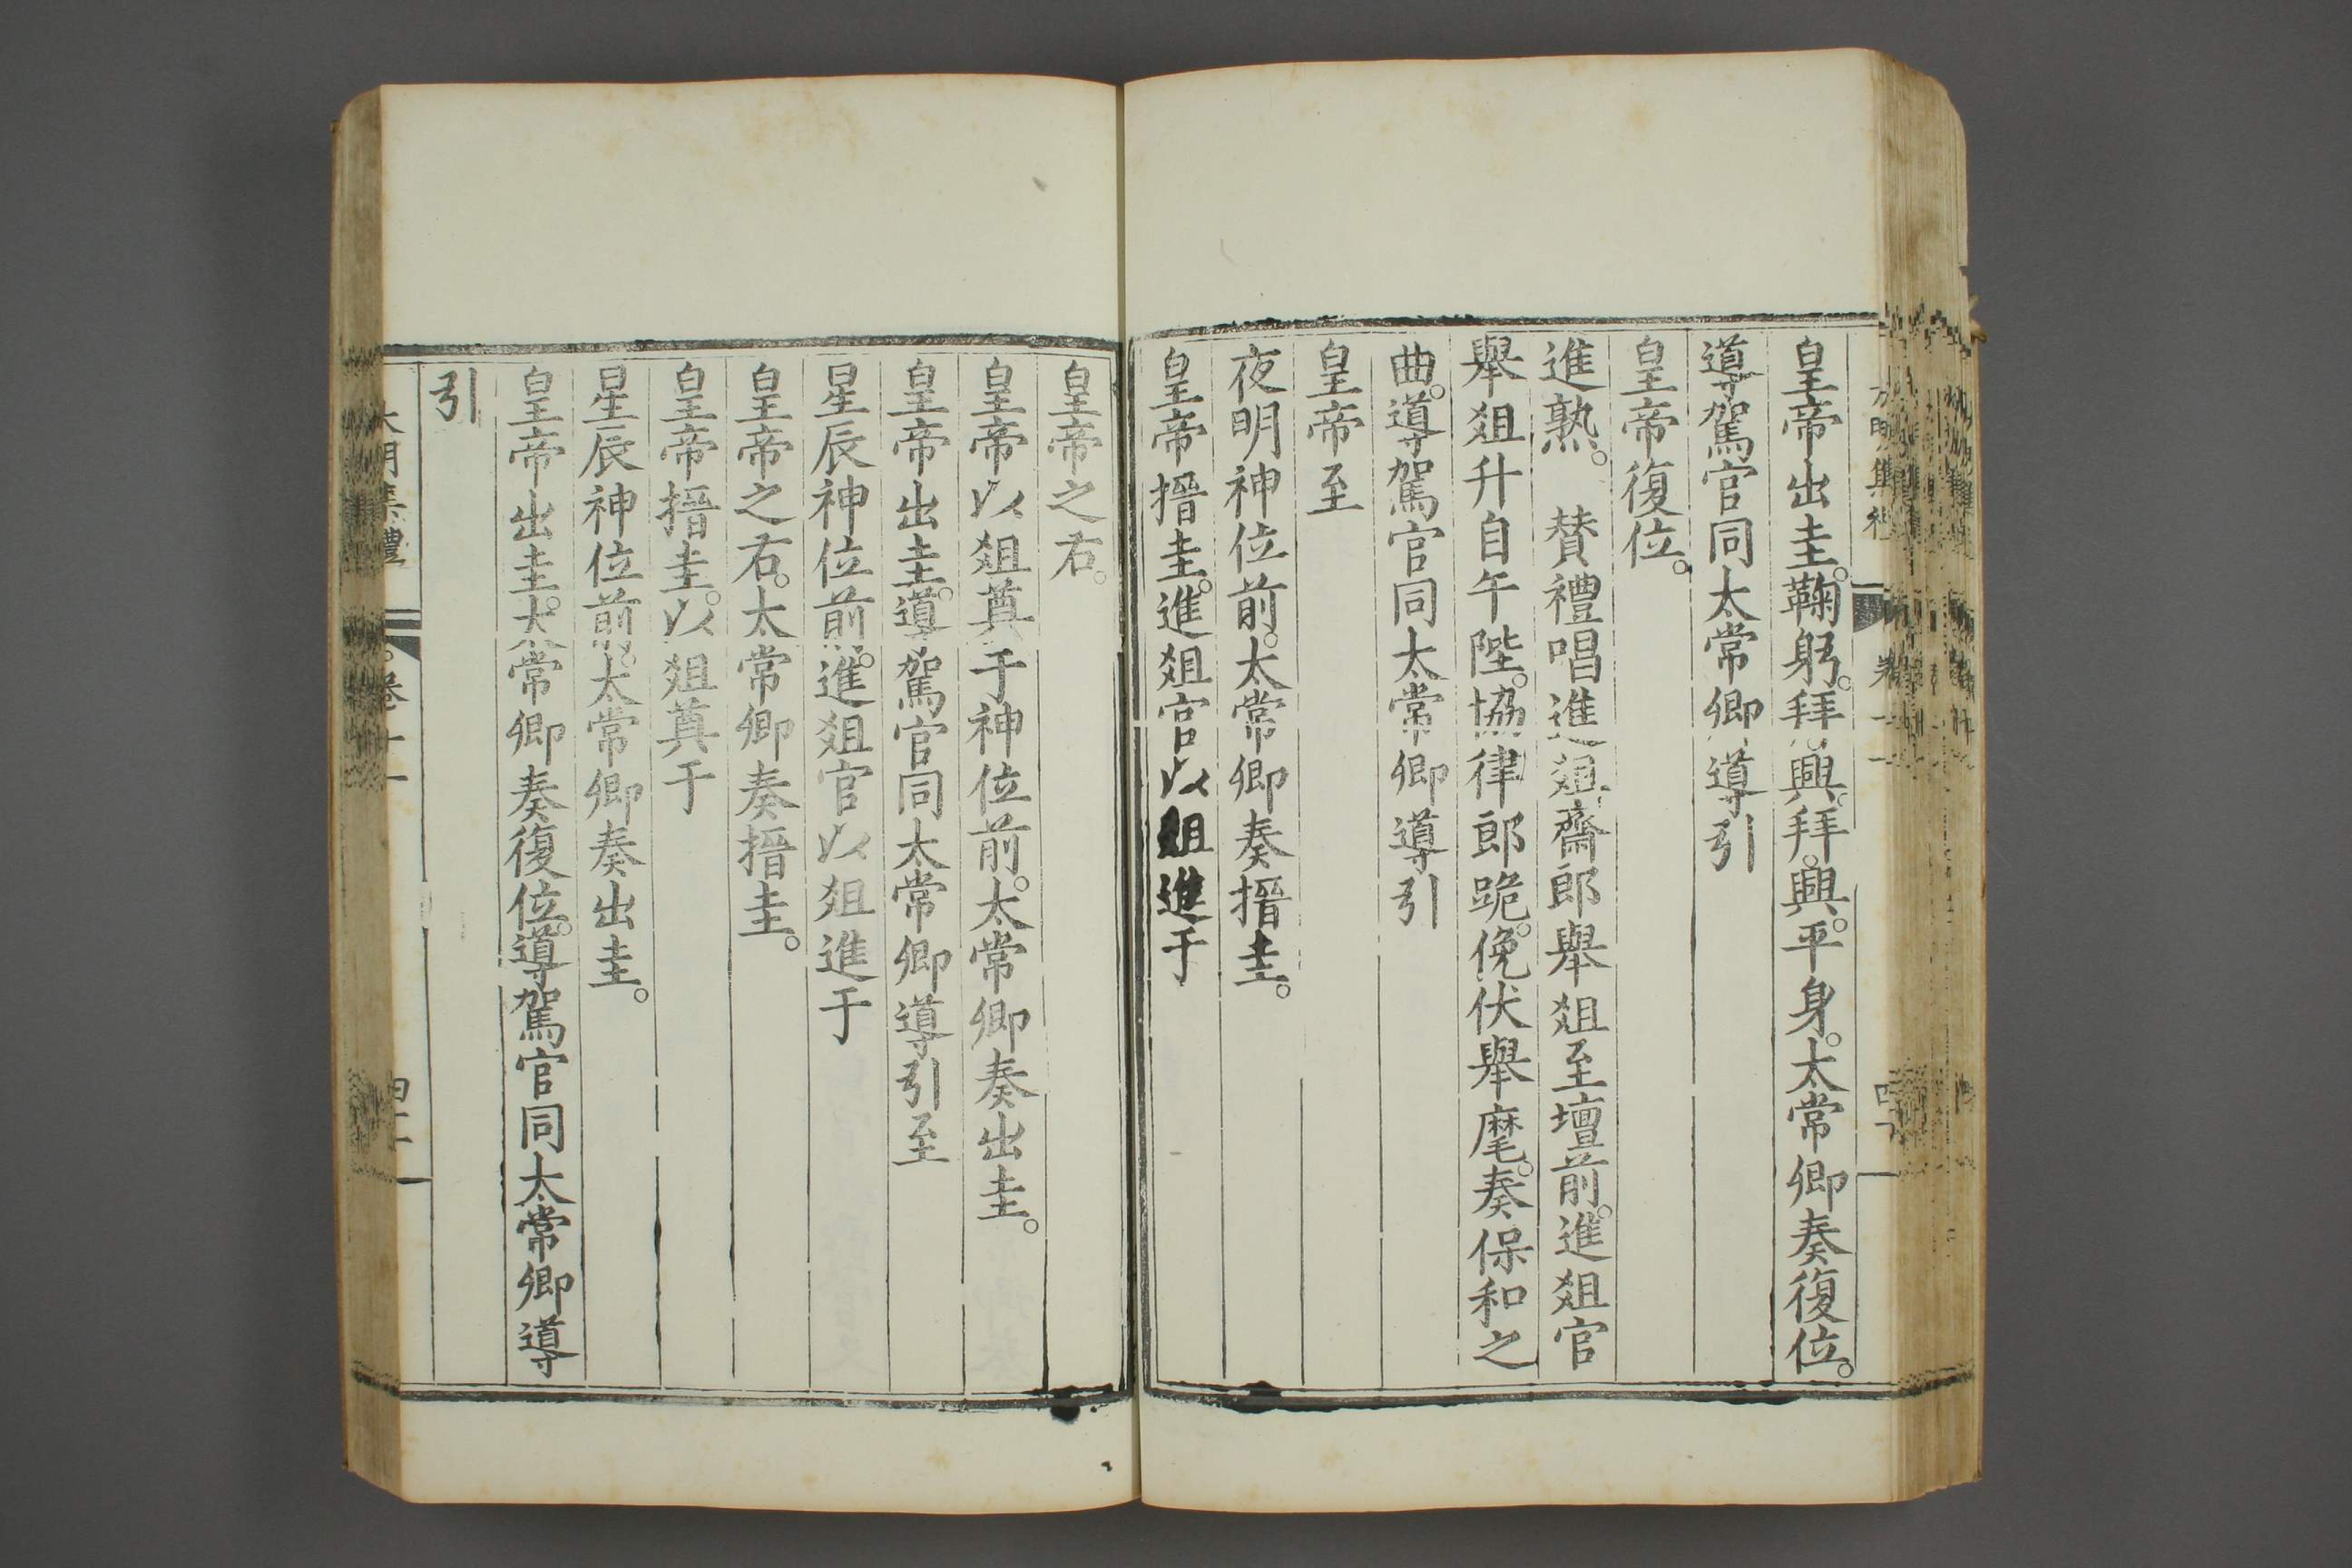 皇帝出圭。鞠躬。拜。興。拜。興。平身。太常卿奏復位。
導駕官同太常卿導引
皇帝復位。
進熟。 賛禮唱進俎齋郎舉俎至壇前。進俎官
舉俎升自午陛。協律郎跪。俛伏舉麾。奏保和之
曲。導駕官同太常卿導引
皇帝至
夜明神位前。太常卿奏搢圭。
皇帝搢圭。進俎官以俎進于
皇帝之右。
皇帝以俎奠于神位前。太常卿奏出圭。
皇帝出圭。導駕官同太常卿導引至
星辰神位前。進俎官以俎進于
皇帝之右。太常卿奏搢圭。
皇帝搢圭。以俎奠于
星辰神位前。太常卿奏出圭。
皇帝出圭。太常卿奏復位。導駕官同太常卿導
引
大明集禮 卷十一 四十二